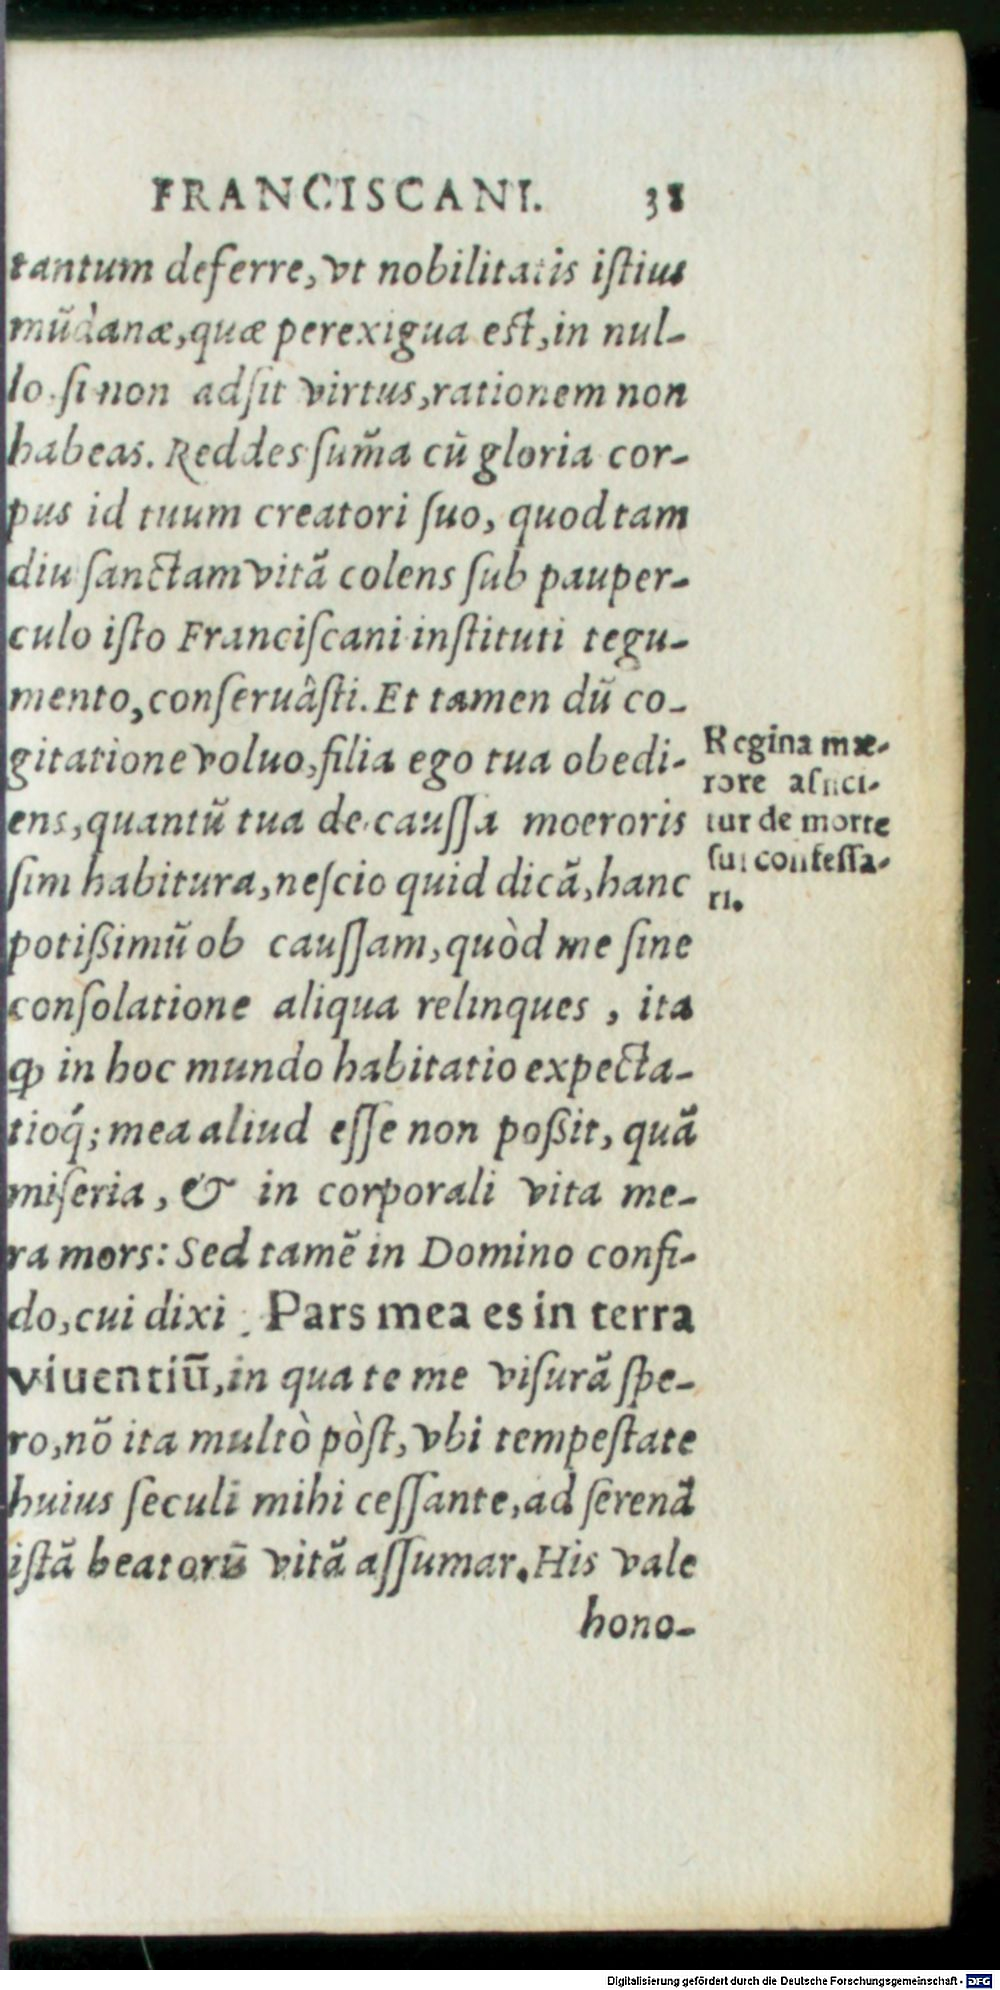 FRANCISCANI. 38
tantum deferre, vt nobilitatis iſtius
mũdanæ, quæ perexigua eſt, in nul-
lo ſi non adſit virtus, rationem non
habeas. Reddes ſum̃a cũ gloria cor-
pus id tuum creatori ſuo, quod tam
diu ſanctam vitã colens ſub pauper-
culo iſto Franciſcani inſtituti tegu-
mento, conſeruâſti. Et tamen dũ co-
gitatione voluo, filia ego tua obedi-
ens, quantũ tua de cauſſa moeroris
ſim habitura, neſcio quid dicã, hanc
potißimũ ob cauſſam, quòd me ſine
conſolatione aliqua relinques, ita
ꝙ in hoc mundo habitatio expecta-
tioq́; mea aliud eſſe non poßit, quã
miſeria, & in corporali vita me-
ra mors: Sed tamẽ in Domino confi-
do, cui dixi. Pars mea es in terra
viuentiũ, in qua te me viſurã ſpe-
ro, nõ ita multò pòſt, vbi tempeſtate
huius ſeculi mihi ceſſante, ad ſerenã
iſtã beatorũ vitã aſſumar. His vale
hono-
Regina mæ-
rore aſfici-
tur de morte
ſui confeſſa-
ri.
Digitalisierung gefördert durch die Deutsche Forschungsgemeinschaft - DFG